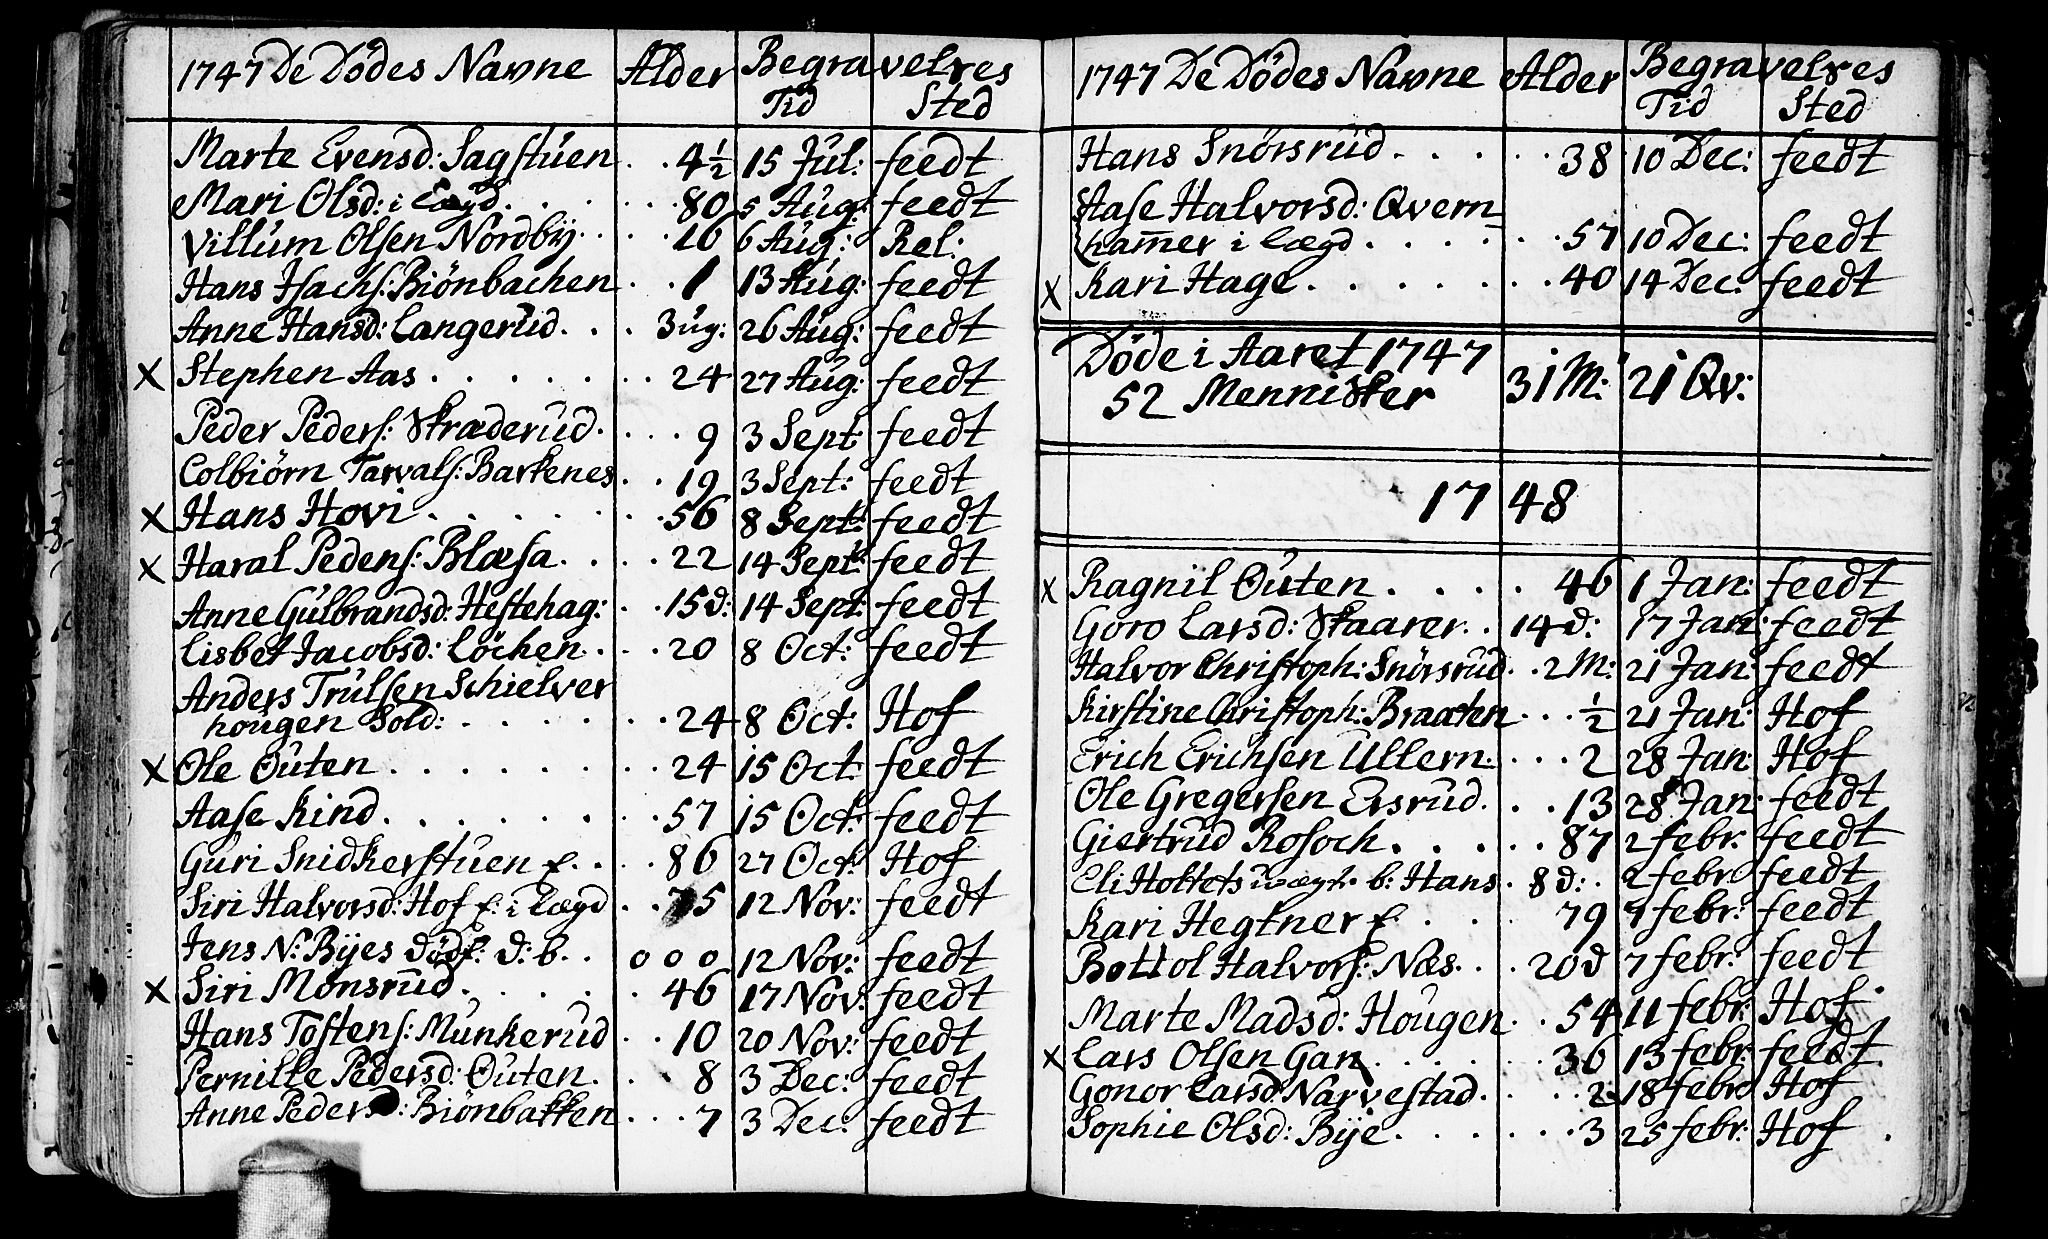 1747 De Dödes Navne Alder Begravelses
Tid Sted
Marte Evensd: Sagstuen . . 4½ 15 Jul: feedt
Mari Olsd: i Lægd . . . . 80 5 Aug: feedt
Villum Olsen Nordby . . . 16 6 Aug: Rel:
Hans Isachs: Biönbachen . . 1 13 Aug: feedt
Anne Hansd: Langerud . . . 3 ug: 26 Aug: feedt
X Stephen Aas . . . . . . 24 27 Aug: feedt
Peder Peders: Skræderud . . . 9 3 Sept feedt
Colbiörn Tarvals: Barkenes . . 19 3 Sept: feedt
X Hans Hovi . . . . . . 56 8 Sept: feedt
X Haral Pedens: Blæsa . . . . 22 14 Sept: feedt
Anne Gulbrandsd: Hestehag: . . 15 d: 14 Sept: feedt
Lisbet Jacobsd: Löchen . . . 20 8 Oct: feedt
Anders Trulsen Schielver
hougen Sold: . . . . . . 24 8 Oct: Hof
X Ole Outen . . . . . . . 24 15 Oct feedt
Aase Kind . . . . . . . 57 15 Oct: feedt
Guri Snidkerstuen E. . . . 86 27 Oct: Hof
Siri Halvorsd: Hof E: i Lægd . . 75 12 Nov: feedt
Jens N: Byes dödf: d: b. . o o o 12 Nov: feedt
X Siri Monsrud . . . . . 46 17 Nov: feedt
Hans Tostens: Munkerud . . 10 20 Nov: feedt
Pernille Pedersd: Outen . . . 8 3 Dec: feedt
Anne Pedersd: Biönbakken . . . 7 3 Dec: feedt
1747 De Dödes Navne Alder Begravelses
Tid Sted
Hans Snörsrud . . . . . . 38 10 Dec: feedt
Aase Halvorsd: Qvern
hamer i Lægd . . . . . . 57 10 Dec: feedt
X Kari Hage . . . . . . . 40 14 Dec: feedt
Döde i Aaret 1747
52 Mennisker 31 M: 21 Qv:
1748
X Ragnil Outen . . . . . 46 1 Jan: feedt
Goro Larsd: Skaarer . . 14 d: 17 Jan: feedt
Halvor Christoph: Snörsrud . . 2 M: 21 Jan: feedt
Kirstine Christoph: Braaten . . . ½ 21 Jan: Hof
Erich Erichsen Ullern . . . . 2 28 Jan: Hof
Ole Gregersen Ersrud . . . 13 28 Jan: feedt
Giertrud Rosoch . . . . . . 87 2 febr: feedt
Eli Holtets b: Hans . 8 d: . 2 febr: feedt
Kari Hegtner E . . . 79 7 febr: feedt
Bottol Halvors: Næs . . . 20 d 7 febr: feedt
Marte Madsd: Hougen . . 54 11 febr: Hof
X Lars Olsen Gan . . . . . . 36 13 febr: feedt
Gonor Larsd: Narvestad . . . . 2 18 febr: Hof
Sophie Olsd: Bye . . . . . . 3 25 febr: Hof